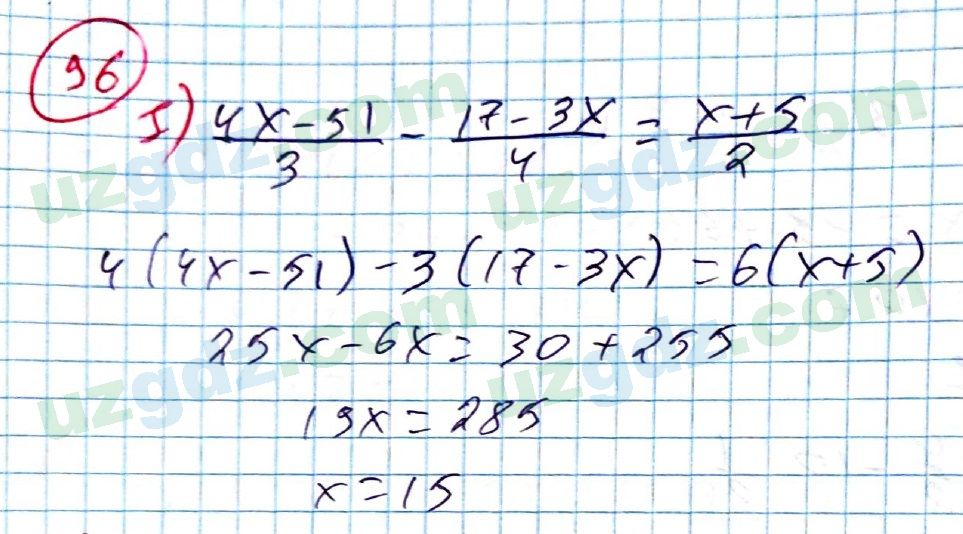 96
1) (4x-51)/3 - (17-3x)/4 = (x+5)/2
4(4x-51)-3(17-3x)=6(x+5)
25x-6x=30+255
19x=285
x=15
uzgdz.com uzgdz.com
uzgdz.com uzgdz.com